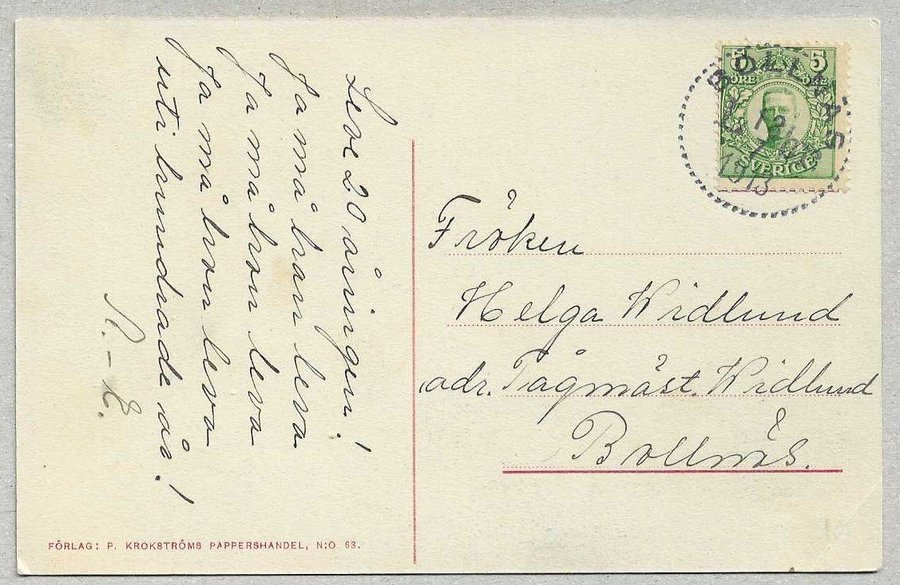 Leve 20 åringen!
Ja må hon leva
Ja må hon leva
Ja må hon leva
uti hundrade år!
5 5
ÖRE ÖRE
SVERIGE
BOLLNÄS
1913
Fröken
Helga Widlund
adr. Tågmäst. Widlund
Bollnäs.
FÖRLAG: P. KROKSTRÖMS PAPPERSHANDEL, N:O 63.